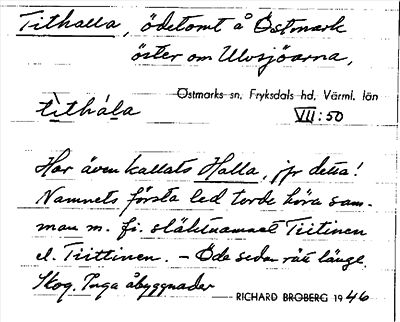 Tithalla, ödetomt å Östmark
öster om Ulvsjöarna,
Östmarks sn, Fryksdals hd, Värml. län
tìthála
VII:50
Har även kallats Halla, jfr detta!
Namnets första led torde höra sam-
man m. fi. släktnamnet Tiitinen
el. Tiittinen. – Öde sedan rätt länge.
Skog. Inga åbyggnader
RICHARD BROBERG 1946